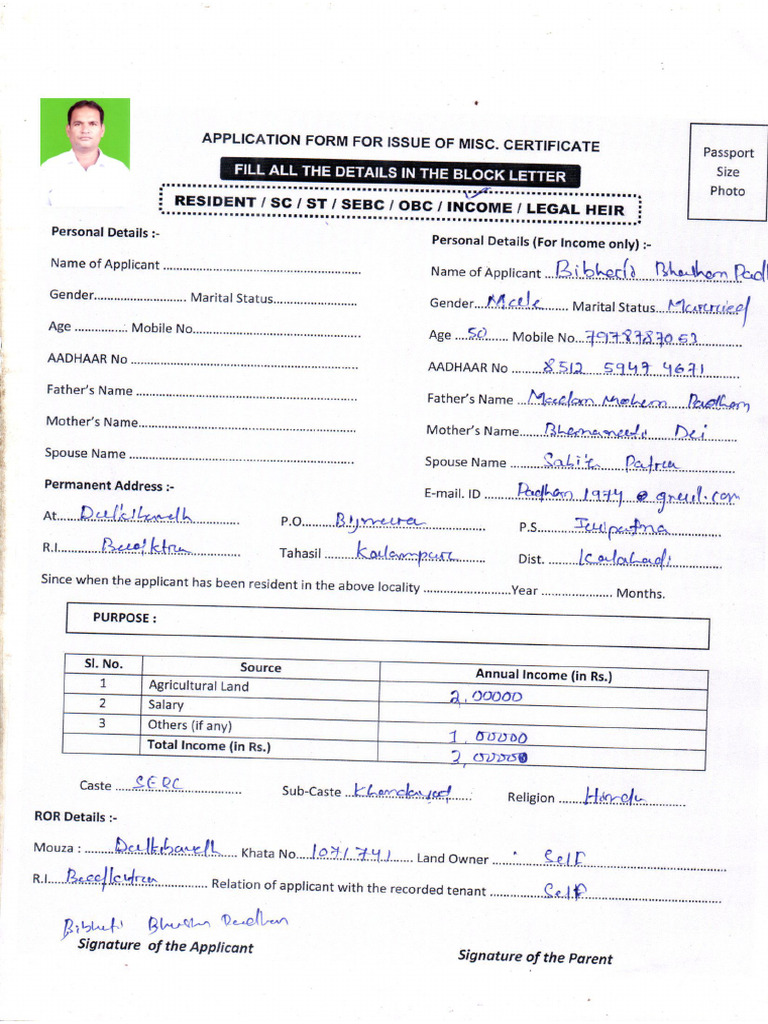 APPLICATION FORM FOR ISSUE OF MISC. CERTIFICATE
FILL ALL THE DETAILS IN THE BLOCK LETTER
RESIDENT / SC / ST / SEBC / OBC / INCOME / LEGAL HEIR
Passport
Size
Photo
Personal Details :-
Name of Applicant
Gender Marital Status
Age Mobile No
AADHAAR No
Father's Name
Mother's Name
Spouse Name
Personal Details (For Income only) :-
Name of Applicant
Gender Male Marital Status Married
Age 50 Mobile No 7978787053
AADHAAR No 8512 5947 4671
Father's Name Madan Mohan Padhan
Mother's Name Dei
Spouse Name Patra
E-mail. ID Padhan 1974 @ gmail.com
Permanent Address :-
At P.O. P.S.
R.I. Tahasil Kalampur Dist. Kalahadi
Since when the applicant has been resident in the above locality Year Months.
PURPOSE :
Sl. No. Source Annual Income (in Rs.)
1 Agricultural Land 2,00000
2 Salary
3 Others (if any) 1,00000
Total Income (in Rs.)
Caste Sub-Caste Religion Hindu
ROR Details :-
Mouza : Khata No 107/741 Land Owner Self
R.I. Relation of applicant with the recorded tenant Self
Signature of the Applicant
Signature of the Parent